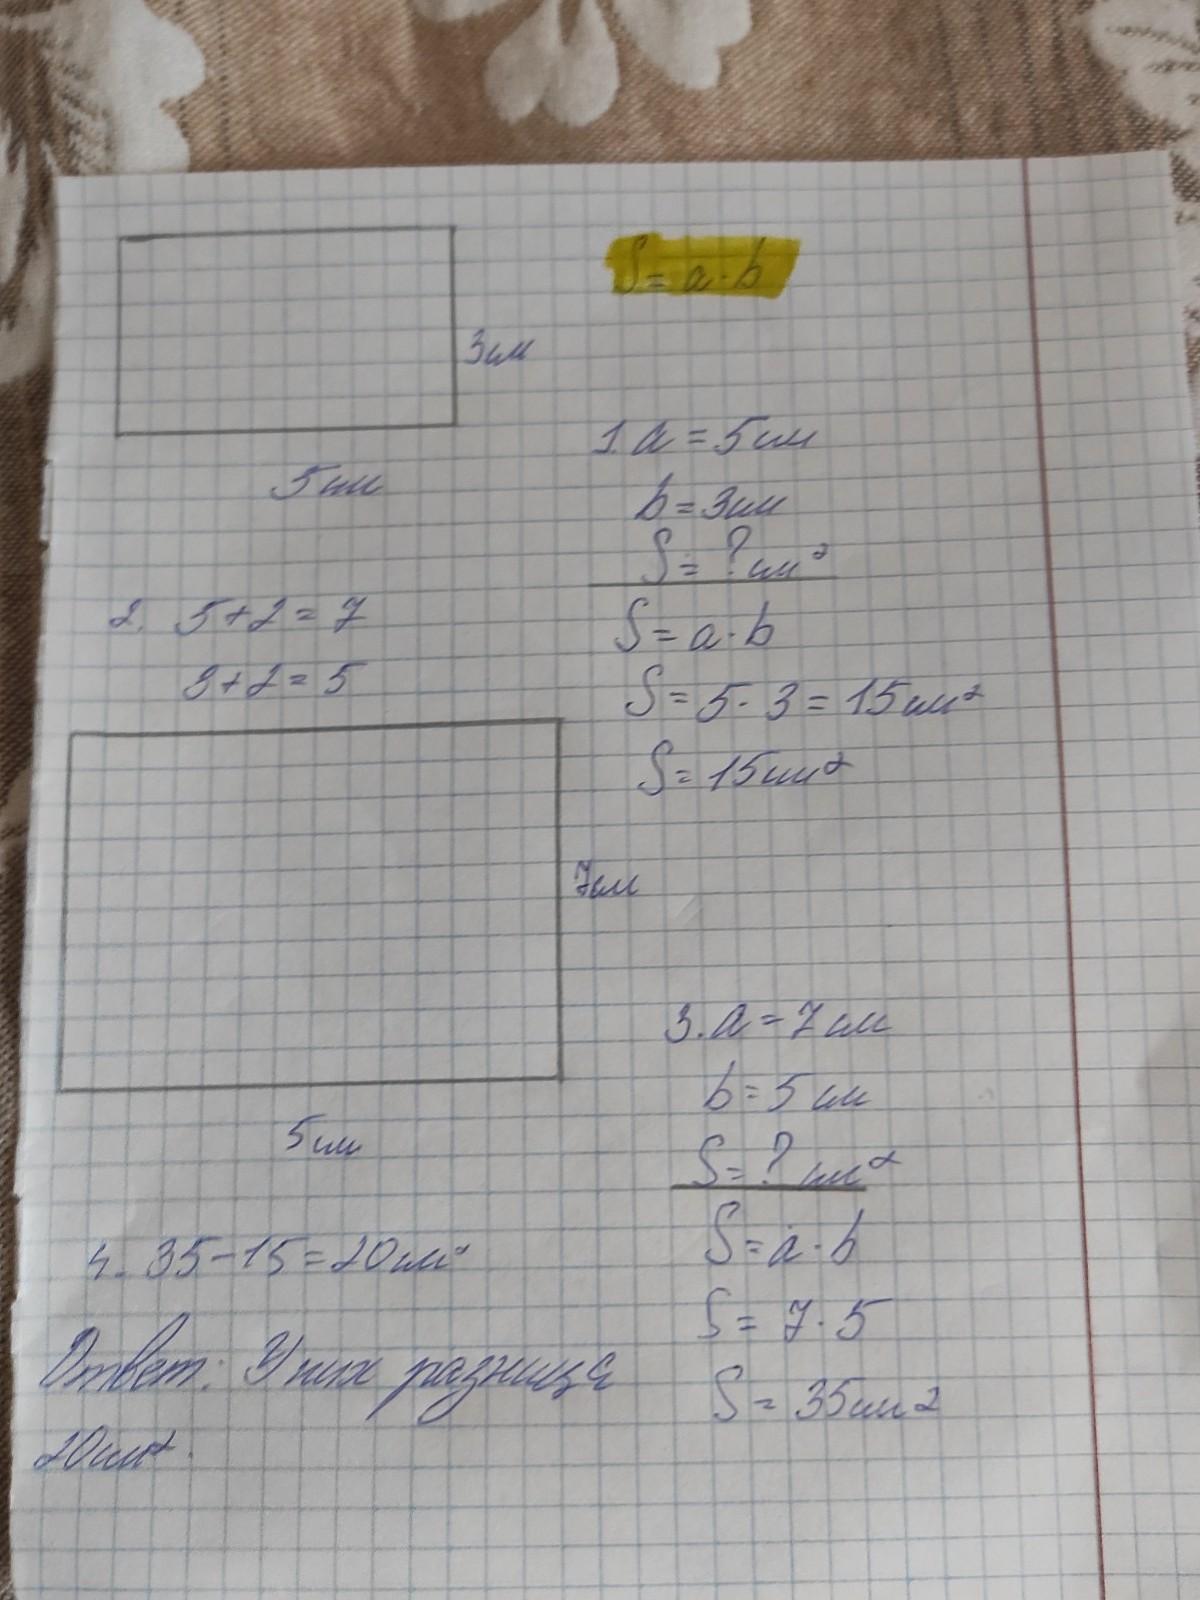 S = a · b
3см
5см
1. a = 5см
b = 3см
S = ? см²
S = a · b
S = 5 · 3 = 15см²
S = 15см²
2. 5+2=7
3+2=5
7см
5см
3. a = 7см
b = 5см
S = ? см²
S = a · b
S = 7 · 5
S = 35см²
4. 35-15=20см²
Ответ: У них разница
20см².